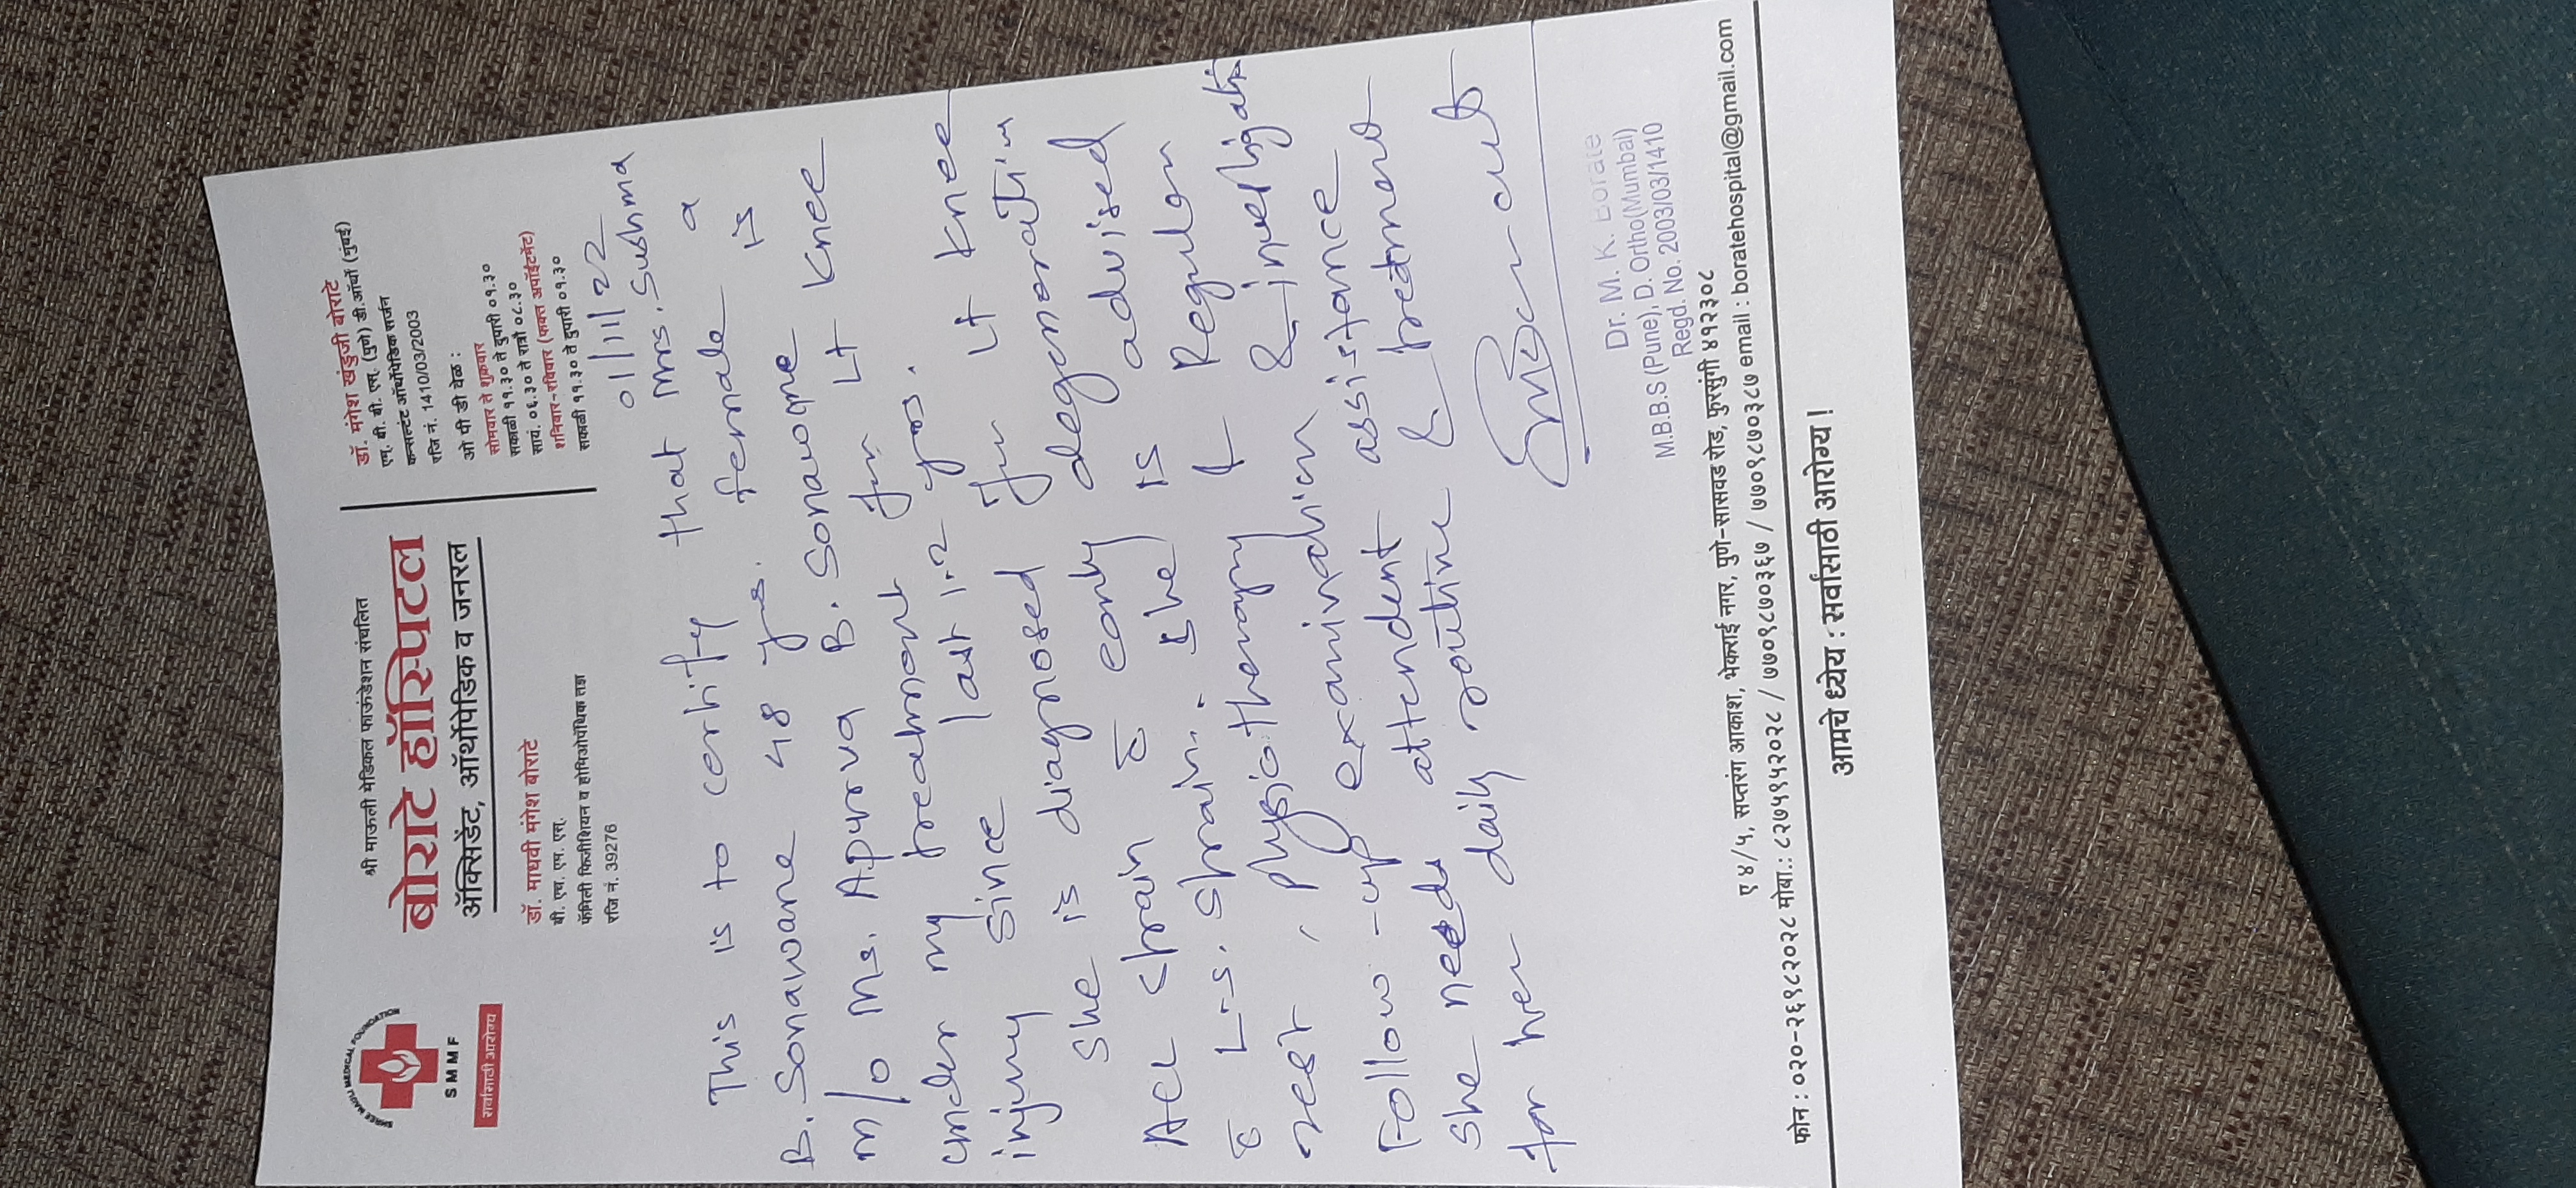 SHREE MAULI MEDICAL FOUNDATION
SMMF
सर्वांसाठी आरोग्य
श्री माऊली मेडिकल फाऊंडेशन संचलित
बोराटे हॉस्पिटल
ॲक्सिडेंट, ऑर्थोपेडिक व जनरल
डॉ. माधवी मंगेश बोराटे
बी. एच. एम. एस.
फॅमिली फिजीशियन व होमिओपॅथिक तज्ञ
रजि नं. 39276
डॉ. मंगेश खंडुजी बोराटे
एम्. बी. बी. एस्. (पुणे) डी.ऑर्थो (मुंबई)
कन्सल्टंट ऑर्थोपेडिक सर्जन
रजि नं. 1410/03/2003
ओ पी डी वेळ :
सोमवार ते शुक्रवार
सकाळी ११.३० ते दुपारी ०१.३०
सायं. ०६.३० ते रात्रौ ०८.३०
शनिवार-रविवार (फक्त अपॉईंटमेंट)
सकाळी ११.३० ते दुपारी ०१.३०
01/11/22
This is to certify that Mrs. Sushma
B. Sonawane 48 yrs. female a
m/o Ms. Apurva B. Sonawane is
under my treatment for Lt Knee
injury since last 1-2 yrs.
She is diagnosed for Lt Knee
ACL strain c̄ early degeneration
c̄ L-S. strain. She is advised
rest, physiotherapy & Regular
Follow-up examination & investigatin
She needs attendent assistance
for her daily routine & treatment
Dr. M. K. Borate
M.B.B.S (Pune), D. Ortho(Mumbai)
Regd. No. 2003/03/1410
ए ४/५, सप्तरंग आकाश, भेकराई नगर, पुणे-सासवड रोड, फुरसुंगी ४१२३०८
फोन : ०२०-२६९८२०२८ मोबा.: ८२७५९५२०२८ / ७७०९८७०३६७ / ७७०९८७०३८७ email : boratehospital@gmail.com
आमचे ध्येय : सर्वांसाठी आरोग्य !